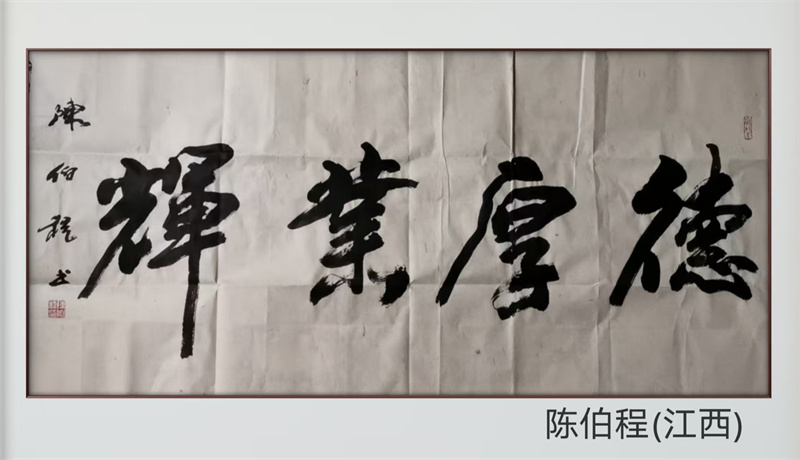 德厚業輝
陳伯程书
陈伯程(江西)